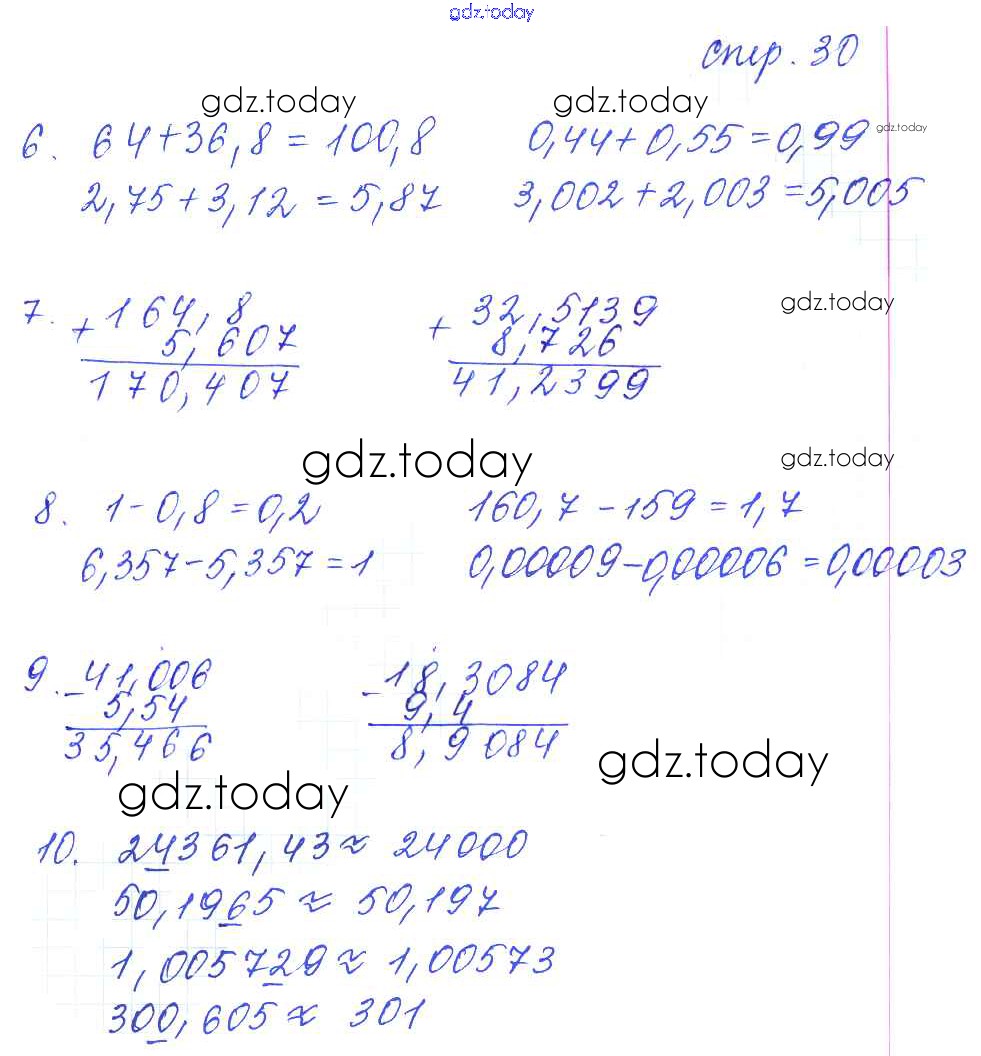 gdz.today
стр. 30
gdz.today gdz.today
6. 64+36,8 = 100,8 0,44+0,55=0,99 gdz.today
2,75+3,12 = 5,87 3,002+2,003=5,005
7. + 164,8 + 32,5139 gdz.today
5,607 8,726
170,407 41,2399
gdz.today gdz.today
8. 1-0,8=0,2 160,7-159=1,7
6,357-5,357=1 0,00009-0,00006=0,00003
9. - 41,006 - 18,3084
5,54 9,4
35,466 8,9084
gdz.today gdz.today
10. 24361,43 ≈ 24000
50,1965 ≈ 50,197
1,005729 ≈ 1,00573
300,605 ≈ 301